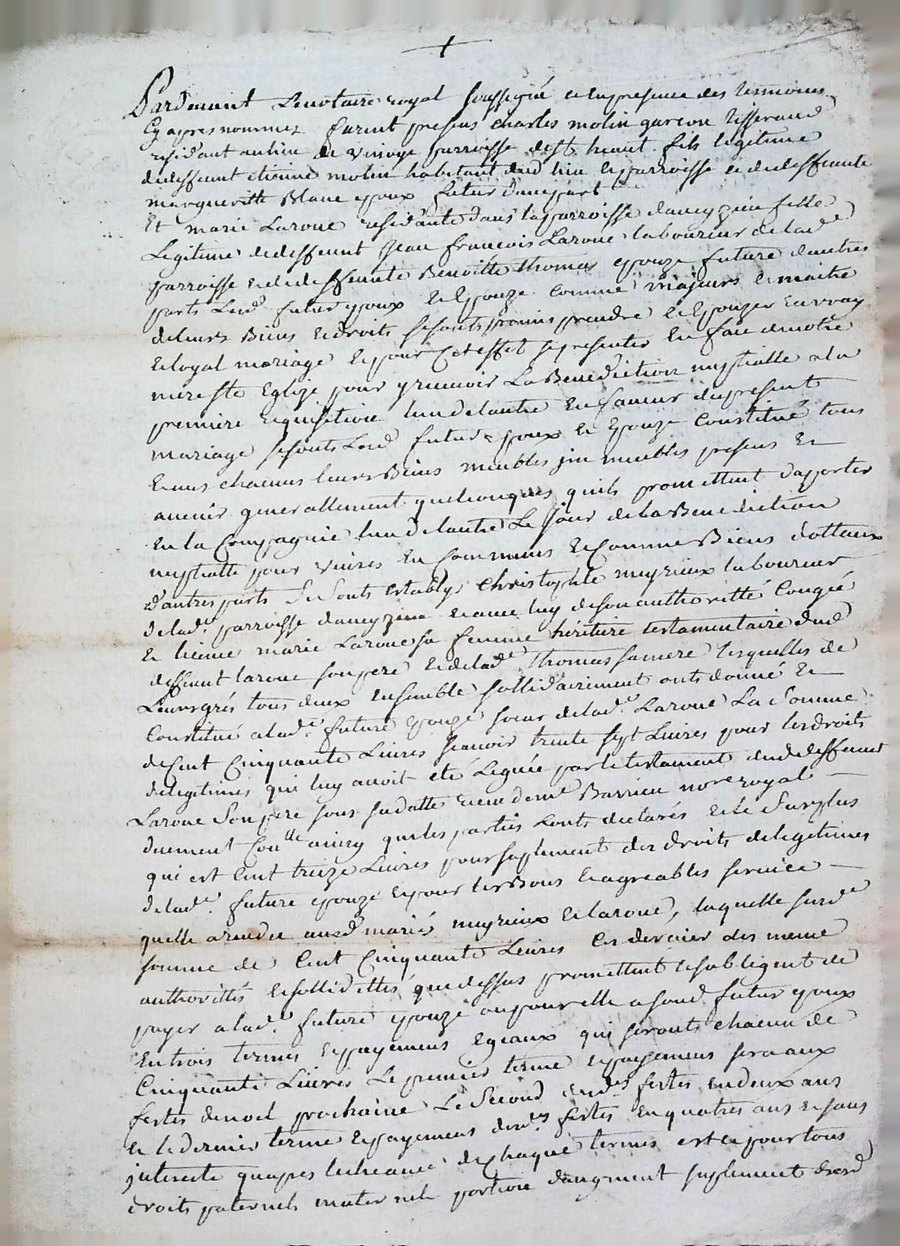 +
Pardevant Lenotaire royal soussigné et enpresence des temoins
Cy apres nommez furent presens charles molin garcon tisserand
residant au lieu de vinoye parroisse de st heant fils legitime
dedeffeunt etienne molin habitant dud lieu et parroisse et dedeffeunte
margueritte Blanc epoux futur d'une part
Et marie Laroue residante dans la parroisse daveyzieu fille
Legitime dedeffeunt Jean francois Laroue laboureur de lad.e
parroisse et de deffeunte Benoitte thomas epouze future d'autres
parts Lesd. futur epoux et Epouze comme majeurs et maitre
de leurs Biens et droits sesonts promis prendre et Epouzer en vray
et loyal mariage et pour Cet effet se presenter en face de notre
mere ste Eglize pour y recevoir La Benediction nuptialle a la
premiere requisition lun de lautre En faveur du present
mariage sesonts Lesd futurs epoux et Epouze Constitué tous
et uns chacuns leurs Biens meubles jmmeubles presens et
avenir generallement quelconques quils promettent d'aporter
en la Compagnie lun de lautre Le Jour de la Benediction
nuptialle pour vivre en Communs et Comme Biens dottaux
d'autres parts se sonts establys Christophle meyrieux laboureur
de lad. parroisse daveyzieu et avec luy de son authoritté Congée
et licence marie Laroue sa femme héritiere testamentaire dud
deffeunt laroue son pere et de lad.e thomas sa mere lesquelles de
Leurs grés tous deux ensemble sollidairement onts donné et
Constitué a lad.e future epouze soeur de lad.e Laroue La Somme
de Cent Cinquante Livres scavoir trente sept Livres pour les droits
de legitimes qui luy avoit eté Leguée par le testament dud deffeunt
Laroue Son pere sous sa datte receu de me Barrieu nore royal
duement Conlle ainsy que les parties Lonts declarés et Le Surplus
qui est Cent treize Livres pour suplement des droits de legitimes
de lad. future epouze et pour les Bons et agreables service
quelle a rendu auxd mariés meyrieux et laroue, laquelle susd.e
somme de Cent Cinquante Livres ces dernier des meme
authorittés et sollidittés que dessus promettent et sobligent de
payer a lad. future epouze ou pour elle a soud futur epoux
En trois termes et payemens egeaux qui seronts chacun de
Cinquante Livres Le premier terme et payement sera aux
fettes de noel prochaine Le Second auxd.s fettes en deux ans
et le dernier terme et payement auxd.s fettes en quatres ans et sans
jnterests quapres lecheance de Chaque termes et ce pour tous
droits paternels maternels portion d'augment suplement diceux